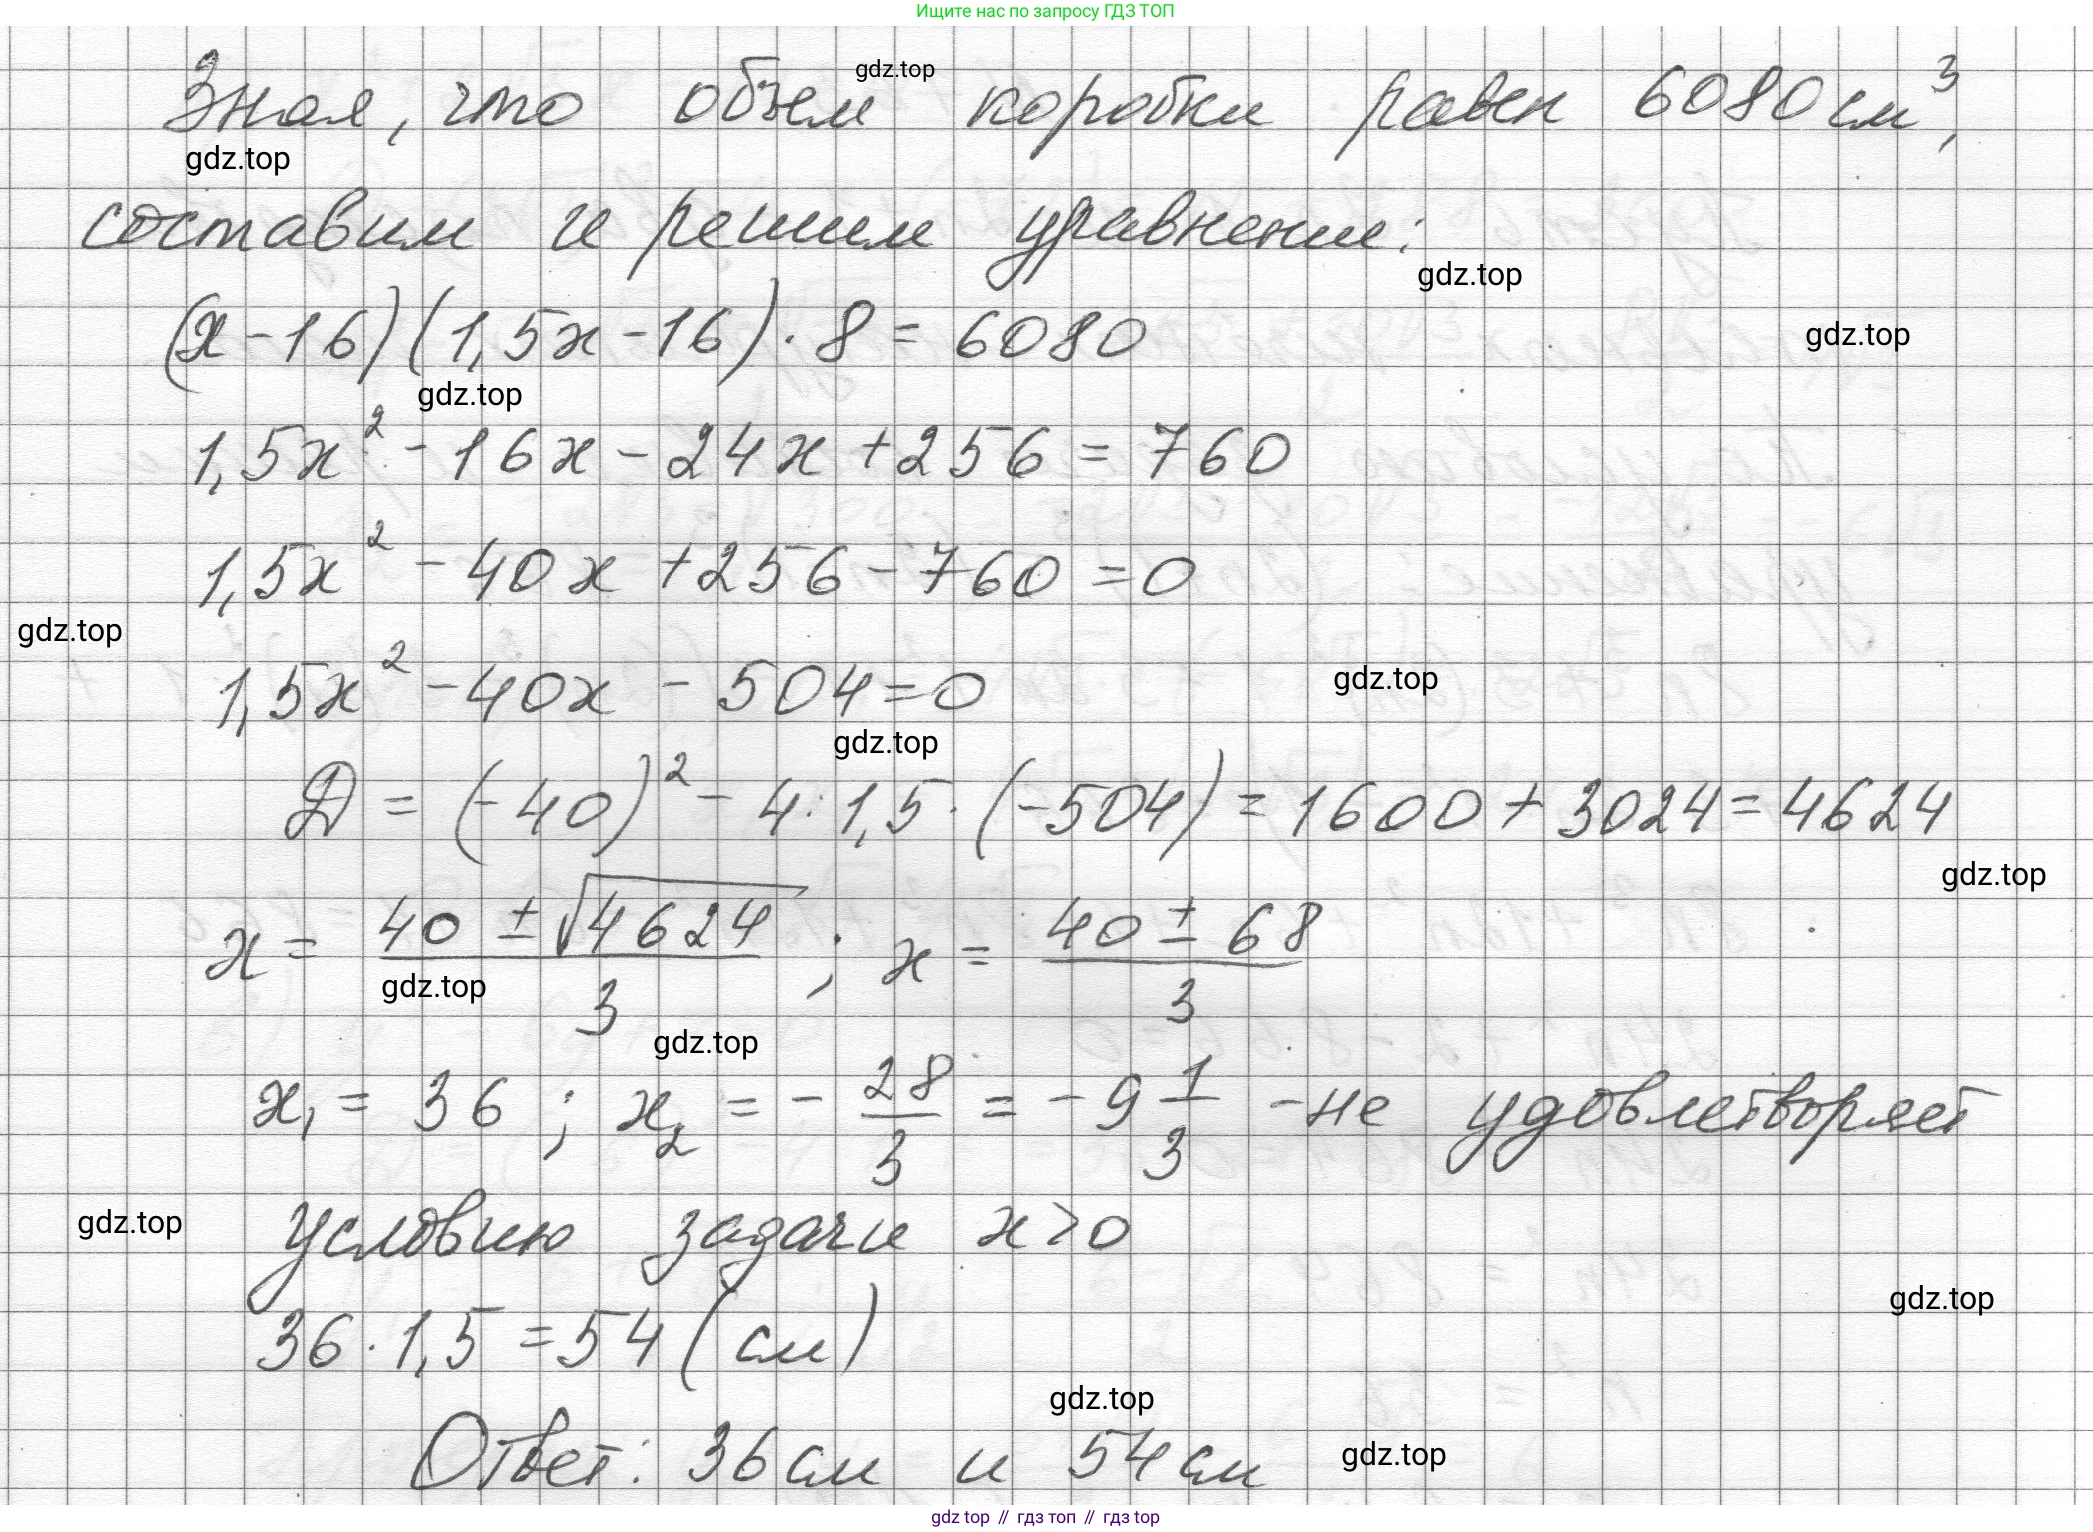 Ищите нас по запросу ГДЗ ТОП
Зная, что объем коробки равен 6080 см³,
gdz.top
gdz.top
составим и решим уравнение:
gdz.top
(x - 16)(1,5x - 16) · 8 = 6080
gdz.top
gdz.top
1,5x² - 16x - 24x + 256 = 760
1,5x² - 40x + 256 - 760 = 0
gdz.top
1,5x² - 40x - 504 = 0
gdz.top
gdz.top
D = (-40)² - 4 · 1,5 · (-504) = 1600 + 3024 = 4624
gdz.top
x = (40 ± √4624)/3 ; x = (40 ± 68)/3
gdz.top
gdz.top
x₁ = 36 ; x₂ = - 28/3 = - 9 1/3 - не удовлетворяет
условию задачи x > 0
gdz.top
gdz.top
36 · 1,5 = 54 (см)
gdz.top
Ответ: 36 см и 54 см
gdz.top
gdz.top // гдз топ // гдз top